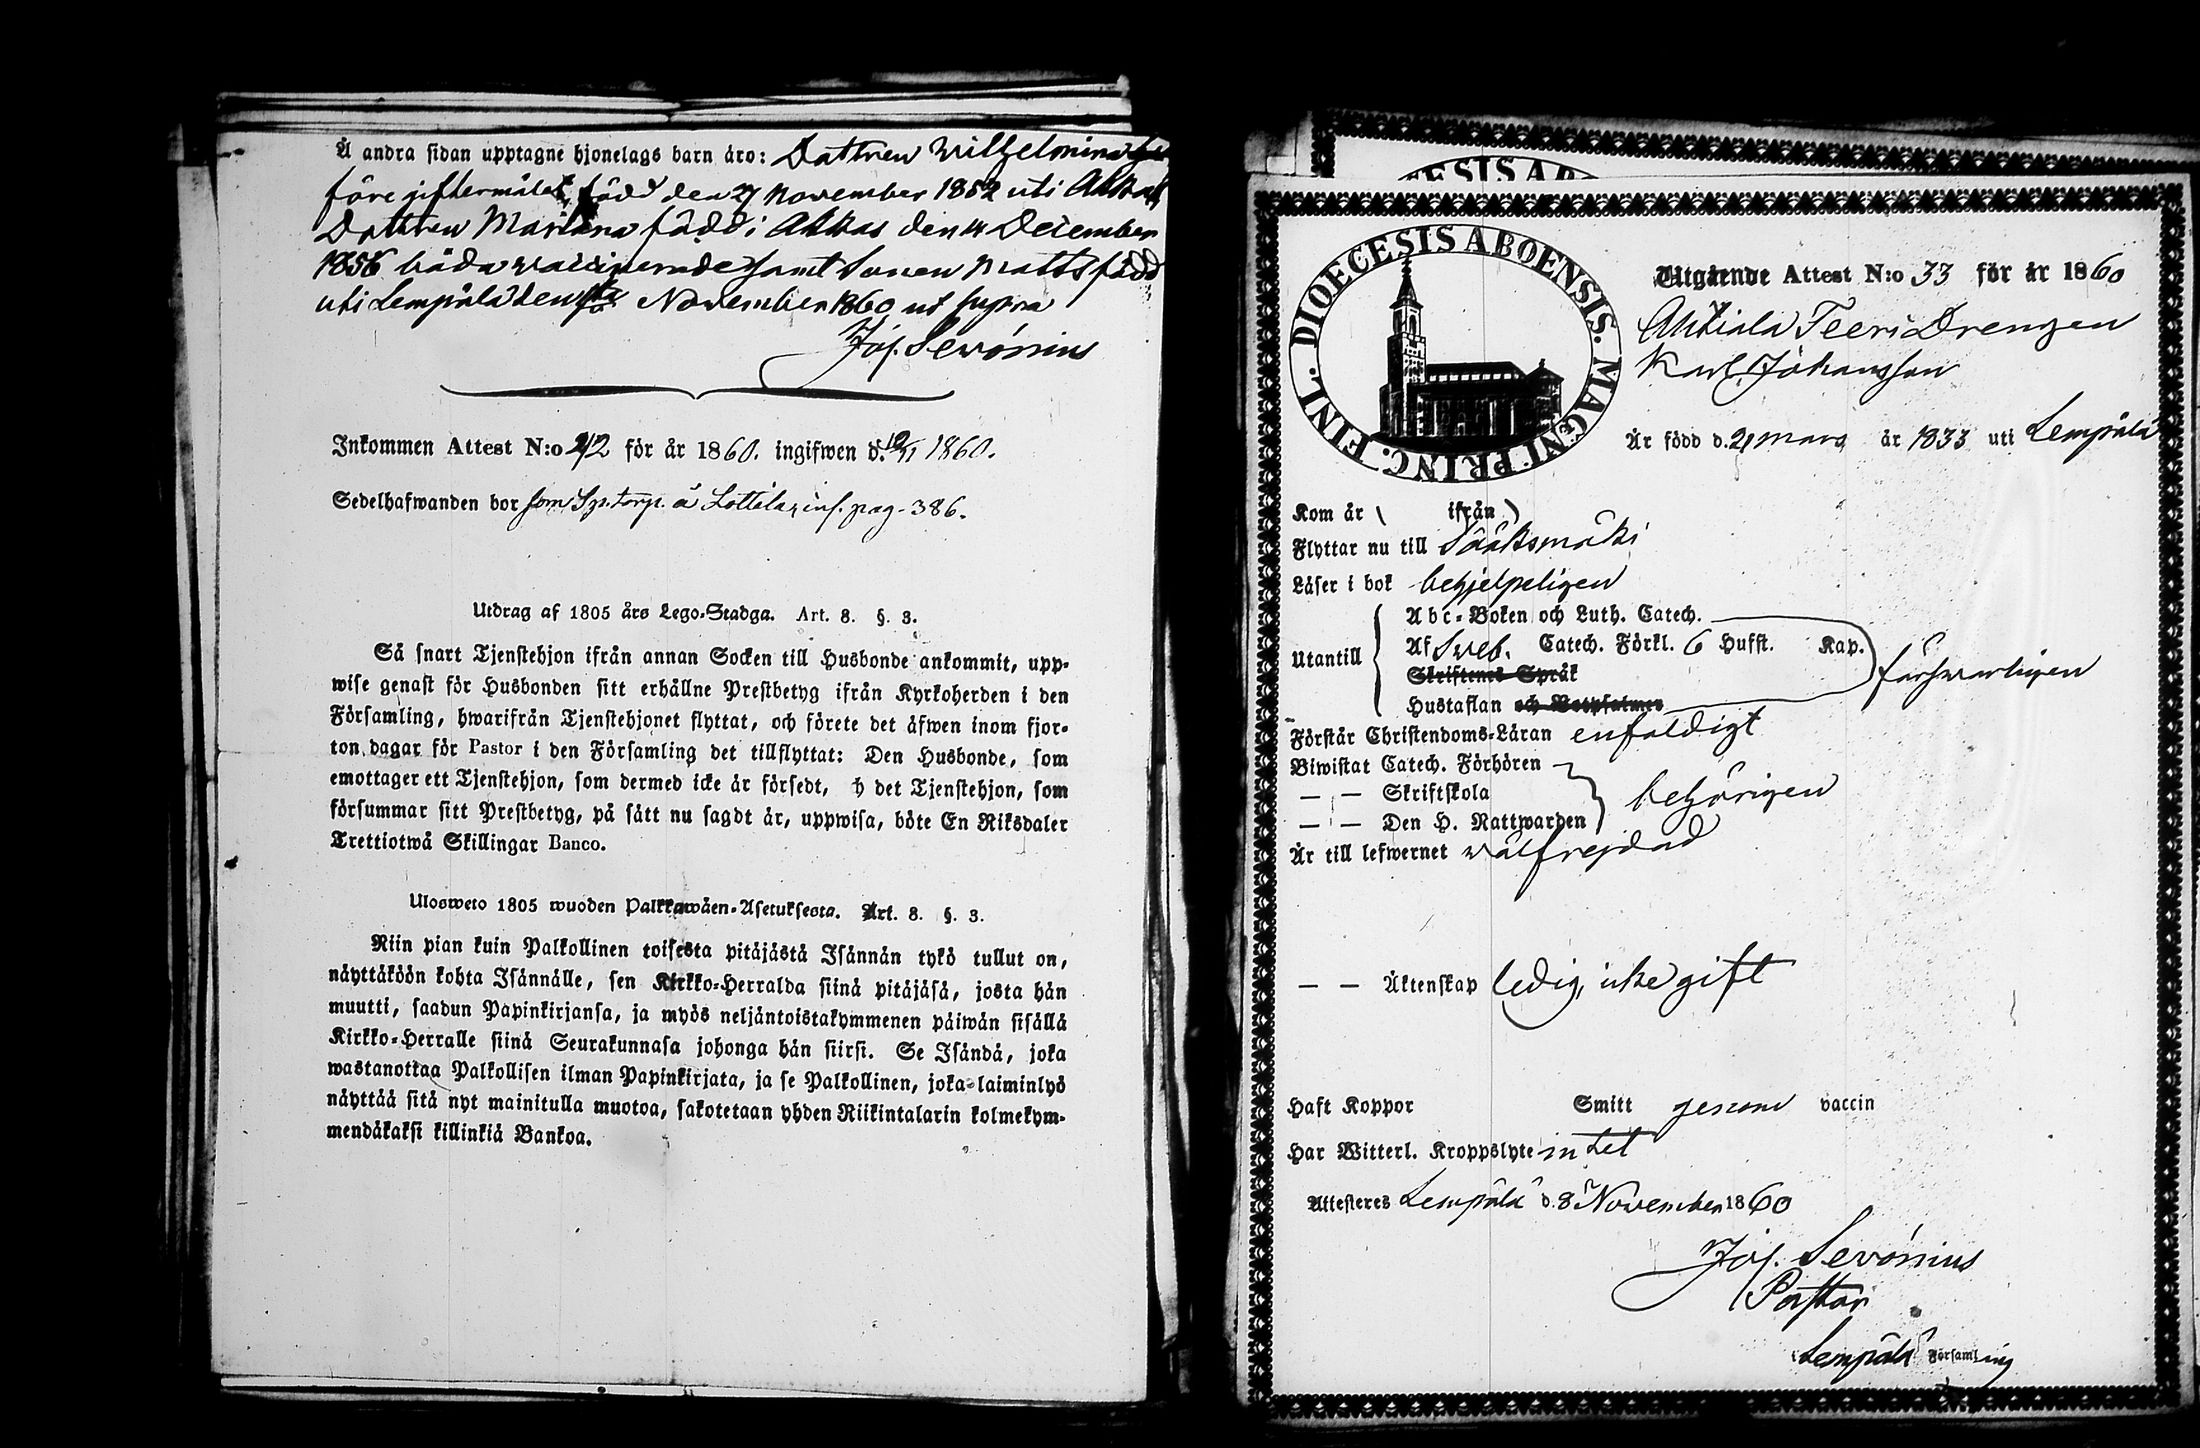 Å andra sidan upptagne hjonelags barn äro: Dottren Wilhelmina
före giftermålet, född den 27 November 1852 uti Akkas
Dottren Mariana född i Akkas den 14 December
1856 båda vaccinerade samt Sonen Matts född
uti Lempälä den November 1860 ut supra
Joh. Sevónius
Inkommen Attest N:o 42 för år 1860. ingifwen d. 12/11 1860.
Sedelhafwanden bor som torp. å Lottila, inf. pag. 386.
Utdrag af 1805 års Lego-Stadga. Art. 8. §. 3.
Så snart Tjenstehjon ifrån annan Socken till Husbonde ankommit, upp-
wise genast för Husbonden sitt erhållne Prestbetyg ifrån Kyrkoherden i den
Församling, hwarifrån Tjenstehjonet flyttat, och förete det äfwen inom fjor-
ton dagar för Pastor i den Församling det tillflyttat: Den Husbonde, som
emottager ett Tjenstehjon, som dermed icke är försedt, h det Tjenstehjon, som
försummar sitt Prestbetyg, på sätt nu sagdt är, uppwisa, böte En Riksdaler
Trettiotwå Skillingar Banco.
Ulosweto 1805 wuoden Palkkawäen-Asetuksesta. Art. 8. §. 3.
Niin pian kuin Palkollinen toisesta pitäjästä Isännän tykö tullut on,
näyttäköön kohta Isännälle, sen Kirkko-Herralda siinä pitäjäsä, josta hän
muutti, saadun Papinkirjansa, ja myös neljäntoistakymmenen päiwän sisällä
Kirkko-Herralle siinä Seurakunnasa johonga hän siirsi. Se Isändä, joka
wastanottaa Palkollisen ilman Papinkirjata, ja se Palkollinen, joka laiminlyö
näyttää sitä nyt mainitulla muotoa, sakotetaan yhden Riikintalarin kolmekym-
mendäkaksi killinkiä Bankoa.
DIOECESIS ABOENSIS. MAGNI PRINC. FINL.
Utgående Attest N:o 33 för år 1860
Ahtiala Teeri Drengen
Karl Johansson
Är född d. 21 mars år 1833 uti Lempälä
Kom år ( ifrån )
Flyttar nu till Sääksmäki
Läser i bok behjelpeligen
Abc-Boken och Luth. Catech.
Utantill Af Sveb. Catech. Förkl. 6 Hufst. Kap. försvarligen
Skriftens Språk
Hustaflan och Botpsalmer
Förstår Christendoms-Läran enfaldigt
Biwistat Catech. Förhören
— — Skriftskola behörigen
— — Den H. Nattwarden
Är till lefwernet wälfrejdad
— — Äktenskap ledig, icke gift
Haft Koppor Smitt genom vaccin
Har Witterl. Kroppslyte intet
Attesteras Lempälä d. 8 November 1860
Joh. Sevónius
Pastor
i Lempälä Församling